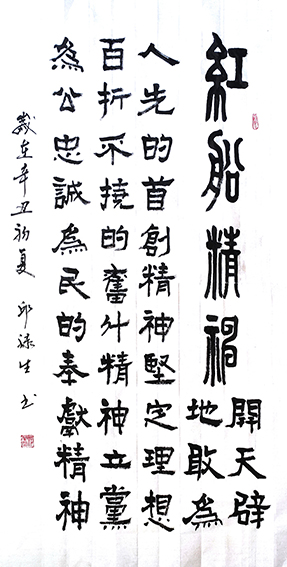 紅船精神
開天辟
地敢為
人先的首創精神堅定理想
百折不撓的奮斗精神立黨
為公忠誠為民的奉獻精神
歲在辛丑初夏 邱禄生书